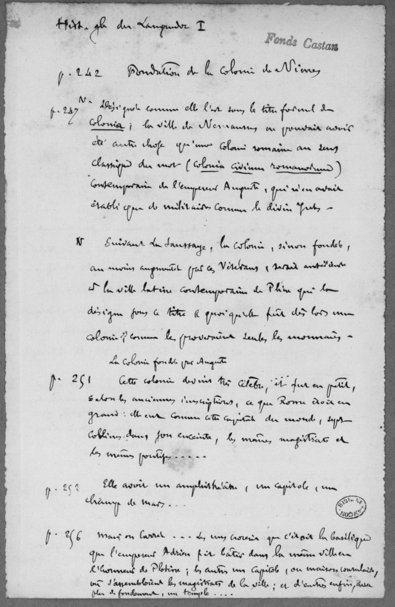 Hist. gle du Languedoc I
Fonds Castan
p. 242 Fondation de la Colonie de Nîmes
p. 247 N. Désignée comme elle l'est sous le titre formel de
Colonia ; la ville de Nemausus ne pouvait avoir
été autre chose qu'une colonie romaine au sens
classique du mot (Colonia civium romanorum)
contemporaine de l'empereur Auguste, qui n'en avait
établi que de militaires comme le divin Jules -
N Suivant La Saussaye, la colonie, sinon fondée,
au moins augmentée par ces Vétérans, serait antérieure
à la ville latine contemporaine de Pline qui la
désigne sous ce titre &
colonie comme le prouveraient seules les monnaies -
La Colonie fondée par Auguste
p. 251 Cette colonie devint très célèbre, et fut en petit,
selon les anciennes inscriptions, ce que Rome étoit en
grand : elle eut comme cette capitale du monde, sept
collines dans son enceinte, les mêmes magistrats et
les mêmes pontifes.....
p. 252 Elle avoit un amphithéâtre, un capitole, un
champ de mars...
p. 256 Maison Carrée ... les uns croient que c'étoit la basilique
que l'empereur Adrien fit bâtir dans la même ville en
l'honneur de Plotine ; les autres un Capitole, ou maison consulaire,
où s'assembloient les magistrats de la ville ; et d'autres enfin, avec
plus de fondement, un temple....